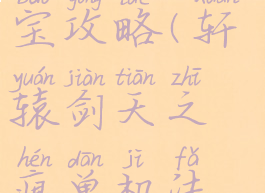 宝攻略(轩
yuán jiàn tiān zhī
辕剑天之
hén dān jī fǎ
痕单机法